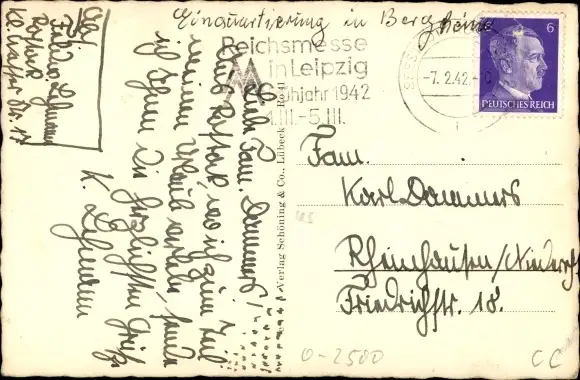 Einquartierung in Bergheim
Reichsmesse
in Leipzig
Frühjahr 1942
1.III.-5.III.
-7.2.42.-
6
DEUTSCHES REICH
Fam.
Karl Dammers
Rheinhausen/Niederrh
Friedrichstr. 18.
Abs.
Lehmann
Rostock
Liebe Fam. Dammers!
Aus Rostock, wo ich zum Teil
meinen Urlaub verlebe, sende
ich Ihnen die herzlichsten Grüße
K. Lehmann
Verlag Schöning & Co., Lübeck
0-2500
CC